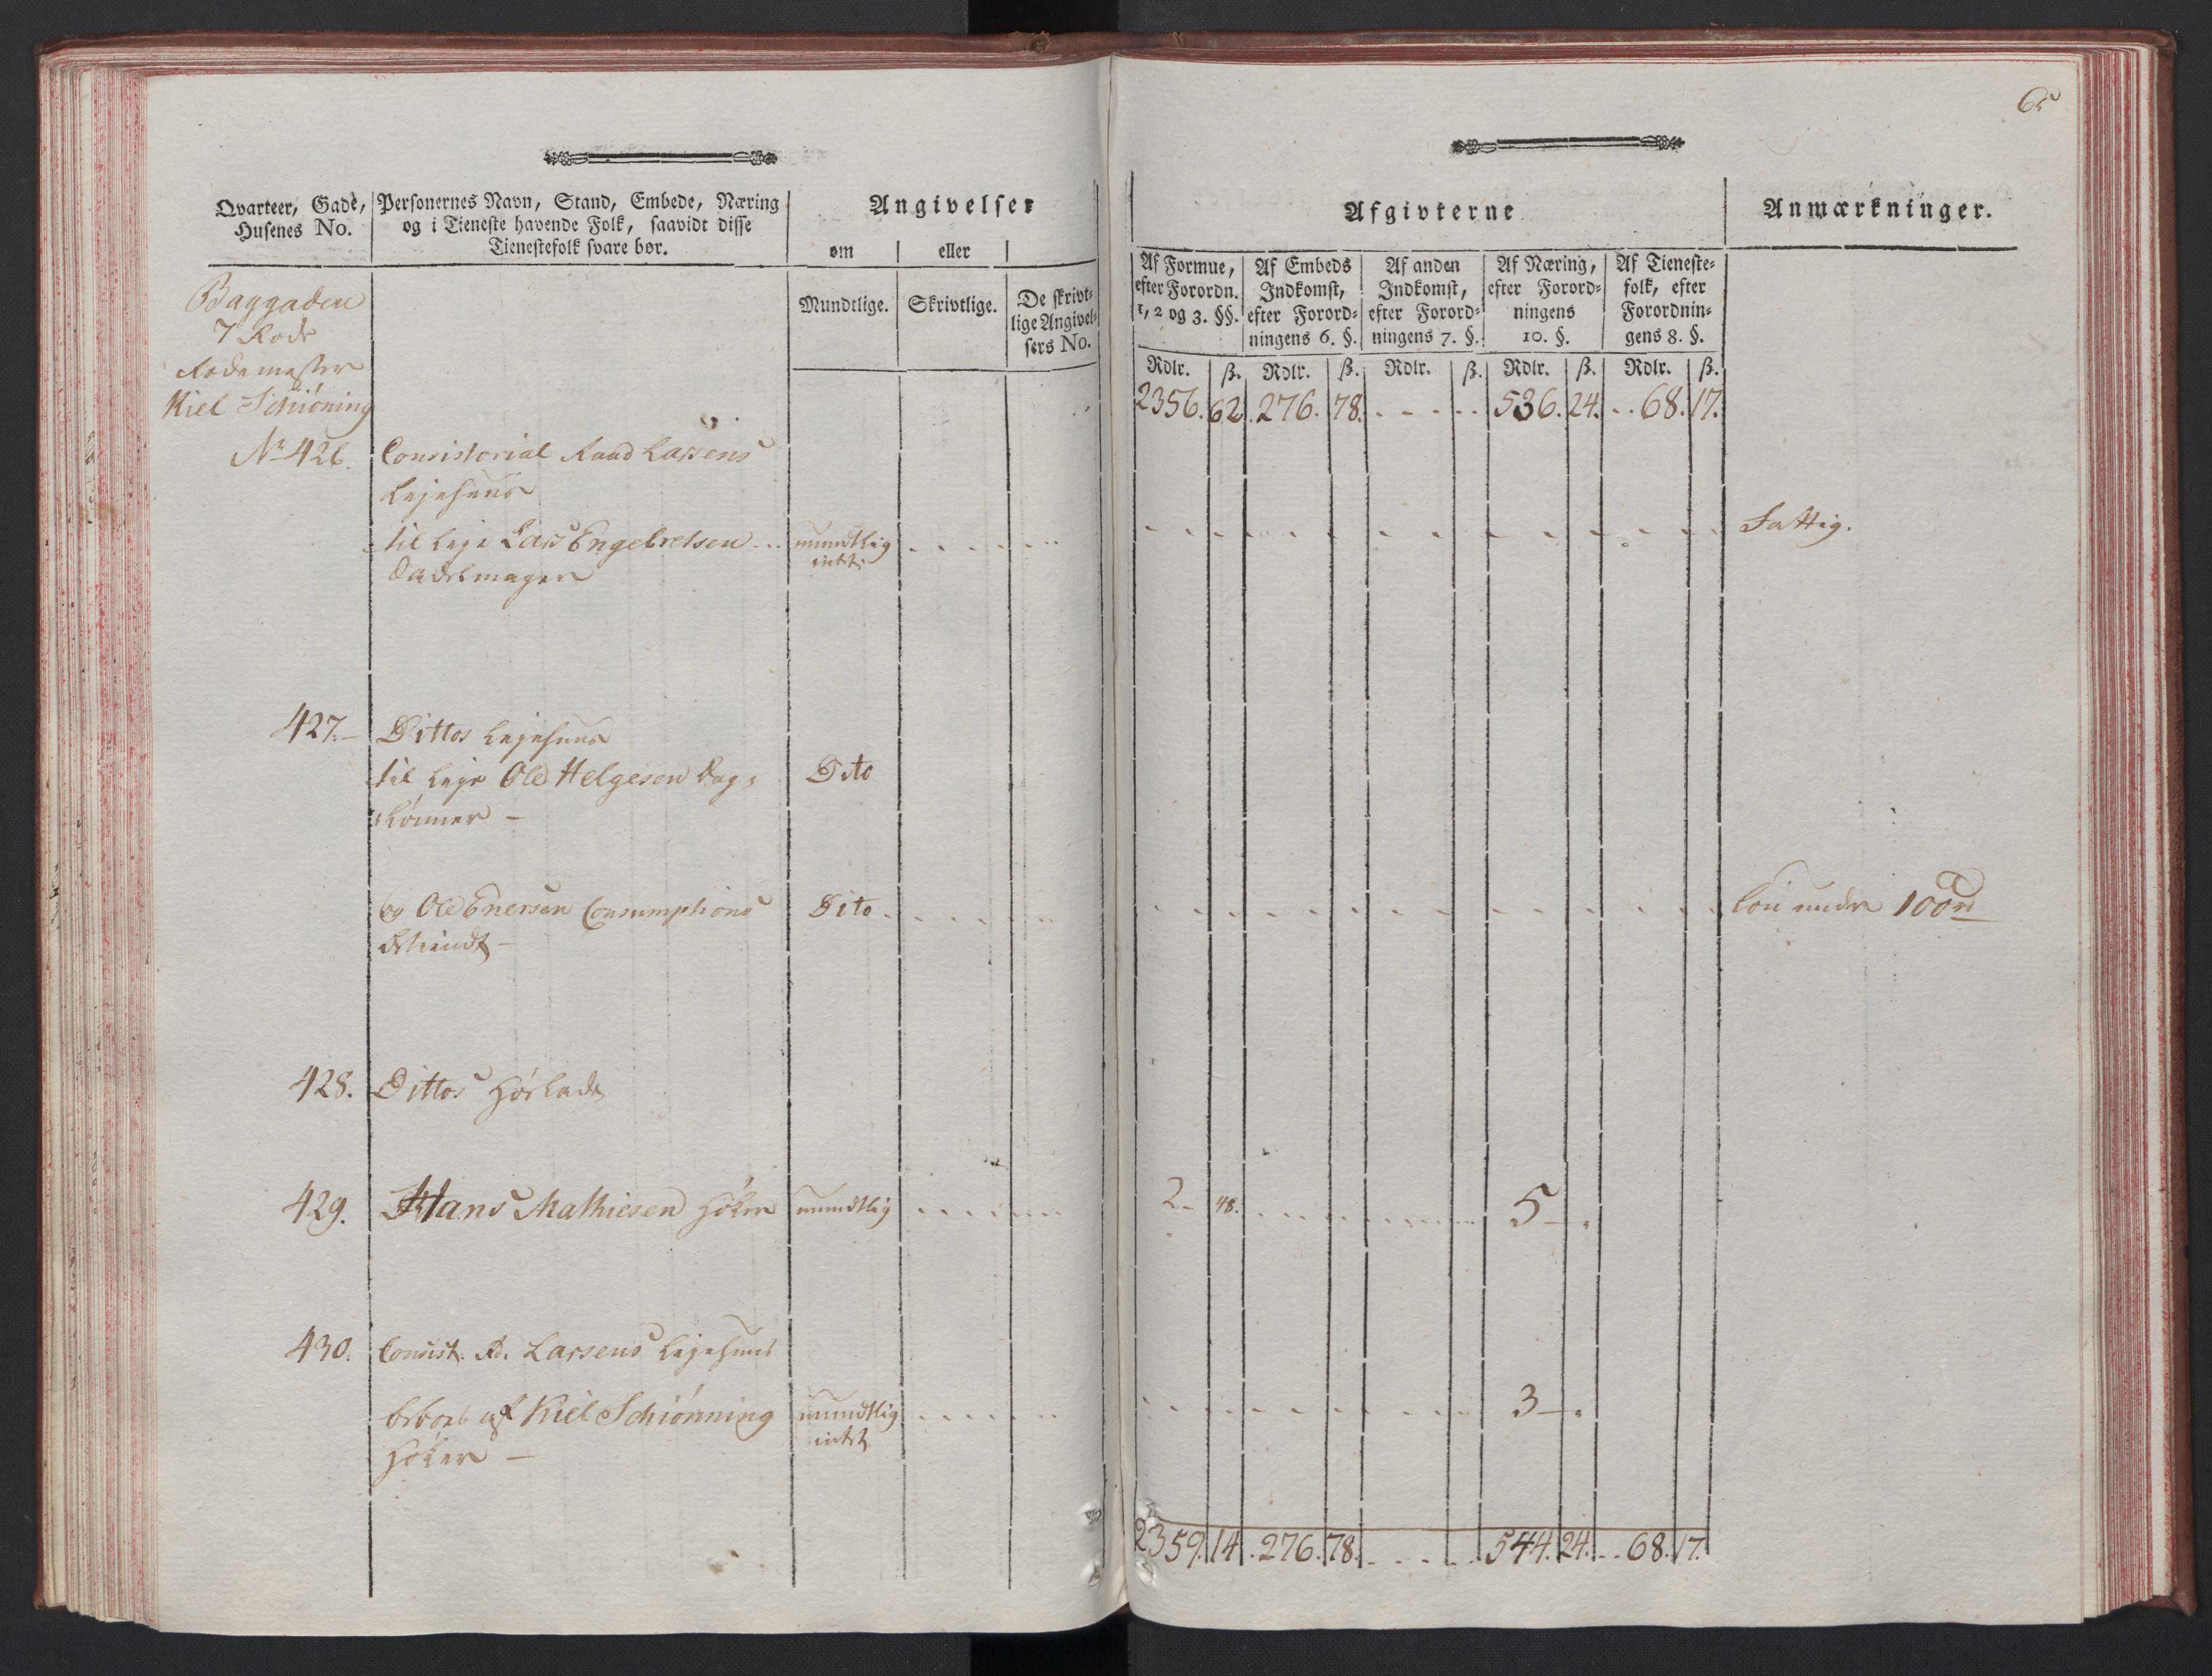 65
Qvarteer, Gade,
Husenes No.
Personernes Navn, Stand, Embede, Næring
og i Tieneste havende Folk, saavidt disse
Tienestefolk svare bør.
Angivelser
om | eller |
Mundtlige.
Skrivtlige.
De skrivt=
lige Angivel=
sers No.
Afgivterne
Anmærkninger.
Af Formue,
efter Forordn.
1, 2 og 3. §§.
Af Embeds
Indkomst,
efter Forord=
ningens 6. §.
Af anden
Indkomst,
efter Forord=
ningens 7. §.
Af Næring,
efter Forord=
ningens
10. §.
Af Tieneste=
folk, efter
Forordnin=
gens 8. §.
Rdlr. | ß. Rdlr. | ß. Rdlr. | ß. Rdlr. | ß. Rdlr. | ß.
Baggaden
7 Rode
Rodemester
Kiel Schiöning
2356. 62. 276. 78. - - - - 536. 24. - - 68. 17.
No 426. Consistorial Raad Lassens
Lejehuus
til Leje Lars Engebretsen - - mundtlig Fattig.
intet.
magere
427. - Dittos Lejehuus
til Leje Ole Helgesen Dag= Dito
lönner -
og Ole Enersen Consumptions Dito - Lön under 100 rd
betiendt -
428. Dittos Høelade
429. Hans Mathiesen Höker mundtlig 2 - 48. 5 -
430. Consist. R. Lassens Lejehuus
beboes af Kiel Schiönning mundtlig 3 -
Höker - intet
2359. 14. 276. 78. - - - - 544. 24. - - 68. 17.